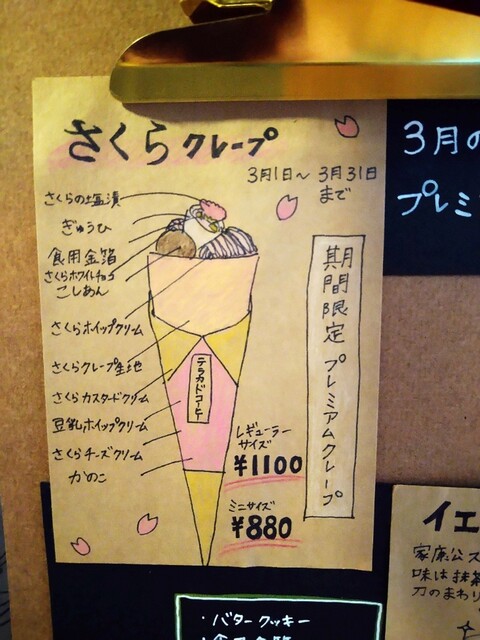 さくらクレープ
3月1日〜3月31日
まで
さくらの塩漬
ぎゅうひ
食用金箔
さくらホワイトチョコ
こしあん
さくらホイップクリーム
さくらクレープ生地
さくらカスタードクリーム
豆乳ホイップクリーム
さくらチーズクリーム
かのこ
テラカドコーヒー
期間限定プレミアムクレープ
レギュラー
サイズ
¥1100
ミニサイズ
¥880
3月の
プレミ
イエ
家康公ス
味は抹茶
刀のまわり
・バタークッキー